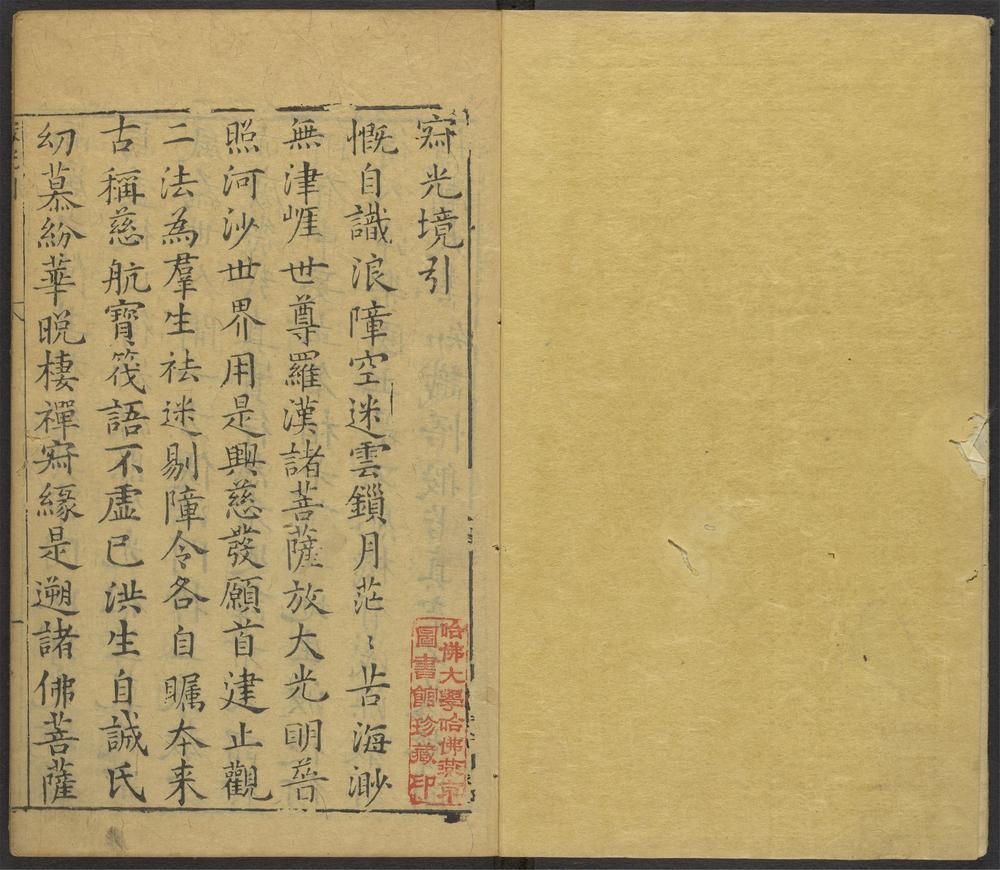 𡧯光境引
慨自識浪障空迷雲鎖月茫〻苦海渺
無津崕世尊羅漢諸菩薩放大光明普
照河沙世界用是興慈發願首建止觀
二法為羣生祛迷剔障令各自矚本来
古稱慈航寶筏語不虛已洪生自誠氏
幼慕紛華晚棲禪𡧯緣是遡諸佛菩薩
哈佛大學哈佛燕京
圖書館珍藏印